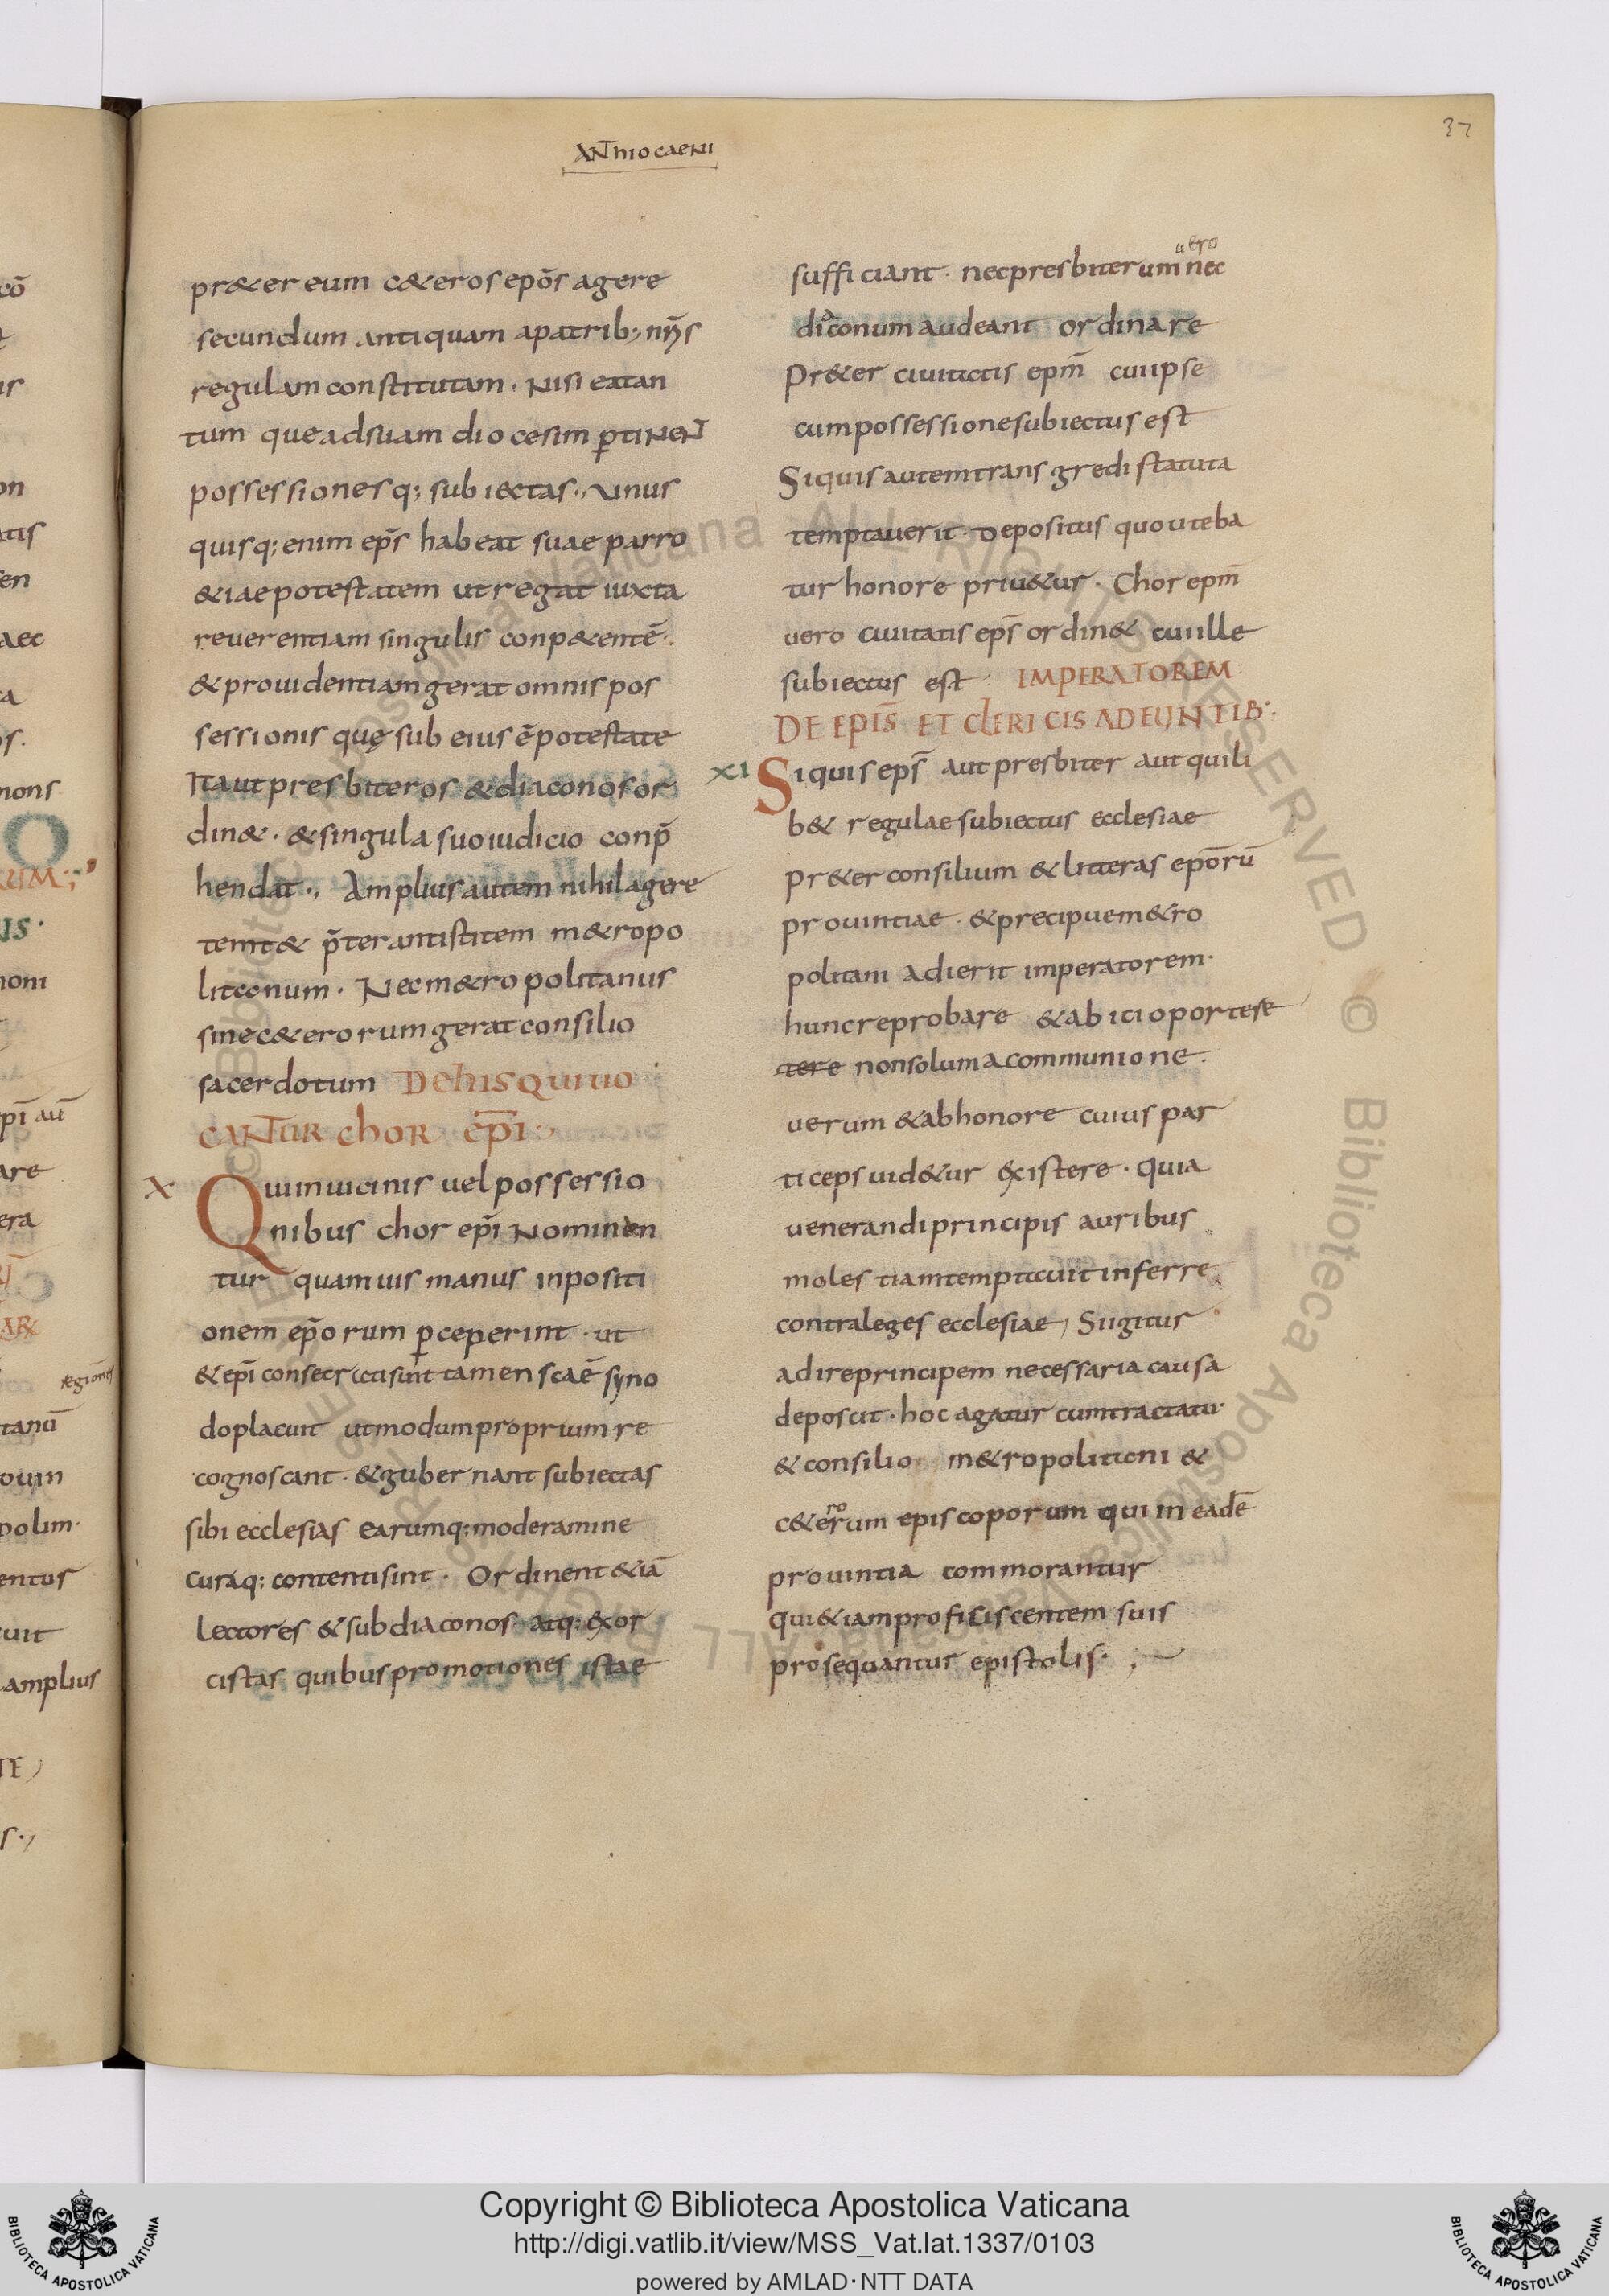 ANTHIOCAENI
37
pr&er eum c&eros epōs agere
secundum antiquam apatrib; nr̄is
regulam constitutam. Nisi eatan
tum que adsuam diocesim ꝑtiNeNT
possessionesq; subiectas., Unus
quisq; enim ep̄s habeat suae parro
&iae potestatem ut regat iuxta
reuerentiam singulis conp&entē.
& prouidentiam gerat omnis pos
sessionis quę sub eius ē potestate
Ita ut presbiteros & diaconos or
din&. & singula suo iudicio conp̄
hendat., Amplius autem nihil agere
temt& p̄ter antistitem m&ropo
litanum. Nec m&ropolitanus
sine c&erorum gerat consilio
sacerdotum DE HIS QUI UO
CANTUR CHOR EP̄I.
X Qui in uicinis uel possessio
nibus chor ep̄i Nominan
tur quamuis manus inpositi
onem ep̄orum ꝑceperint. ut
& ep̄i consecrati sint tamen scāē syno
do placuit ut modum proprium re
cognoscant. & gubernant subiectas
sibi ecclesias earumq: moderamine
curaq: contenti sint. Ordinent &iā
Lectores & subdiaconos atq: exor
cistas quibus promotiones istae
sufficiant. nec presbiterum uero nec
diaconum audeant ordinare
Pr&er ciuitatis ep̄m cui ipse
cum possessione subiectus est
Si quis autem transgredi statuta
temptauerit. Depositus quo uteba
tur honore priu&ur. Chor ep̄m
uero ciuitatis ep̄s ordin& cui ille
subiectus est IMPERATOREM
DE EPIS̄ ET CLERICIS ADEUNTIB.
XI Si quis ep̄s aut presbiter aut quili
b& regulae subiectus ecclesiae
pr&er consilium & litteras epōrū
prouintiae. & precipue m&ro
politani adierit imperatorem.
hunc reprobare & abici oportese
tere non solum a communione.
uerum & ab honore cuius par
ticeps uid&ur existere. quia
uenerandi principis auribus
molestiam temptauit inferre
contra leges ecclesiae, Si igitur
adire principem necessaria causa
deposcit. hoc agatur cum tractatu
& consilio m&ropolitani &
c&erorum episcoporum qui in eadē
prouintia commorantur
qui &iam proficiscentem suis
prosequantur epistolis. ;
cō
us
on
atis
en
aec
ta
os.
nons
RUM;
IS.
noni
pī aū
are
era
AR
regiones
tanū
ouin
polim.
entus
uit
amplius
TE
s.,
Copyright © Biblioteca Apostolica Vaticana
http://digi.vatlib.it/view/MSS_Vat.lat.1337/0103
powered by AMLAD·NTT DATA
BIBLIOTECA APOSTOLICA VATICANA
BIBLIOTECA APOSTOLICA VATICANA